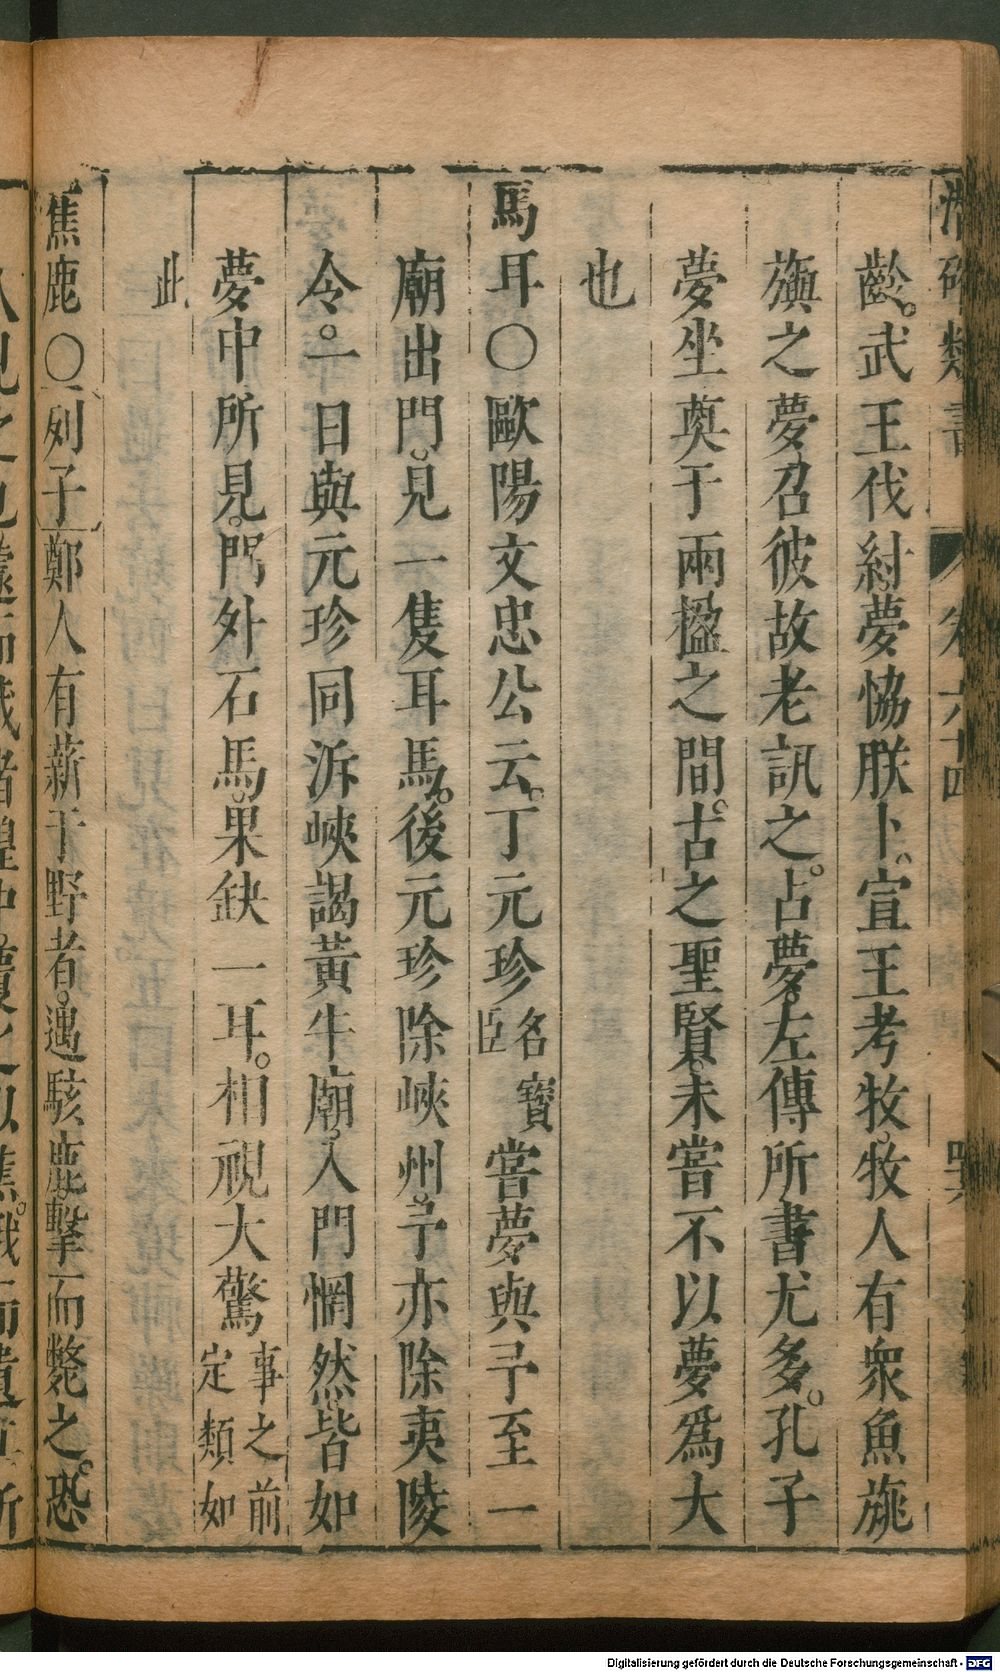 潛確類書 卷六十四
齡武王伐紂夢協朕卜宣王考牧牧人有衆魚旐
旟之夢召彼故老訊之占夢左傳所書尤多孔子
夢坐奠于兩楹之間古之聖賢未嘗不以夢爲大
也
馬耳〇歐陽文忠公云丁元珍名寶臣嘗夢與予至一
廟出門見一隻耳馬後元珍除峽州予亦除夷陵
令一日與元珍同泝峽謁黃牛廟入門惘然皆如
夢中所見門外石馬果缺一耳相視大驚事之前定類如
此
焦鹿〇列子鄭人有薪于野者遇駭鹿擊而斃之恐
Digitalisierung gefördert durch die Deutsche Forschungsgemeinschaft - DFG